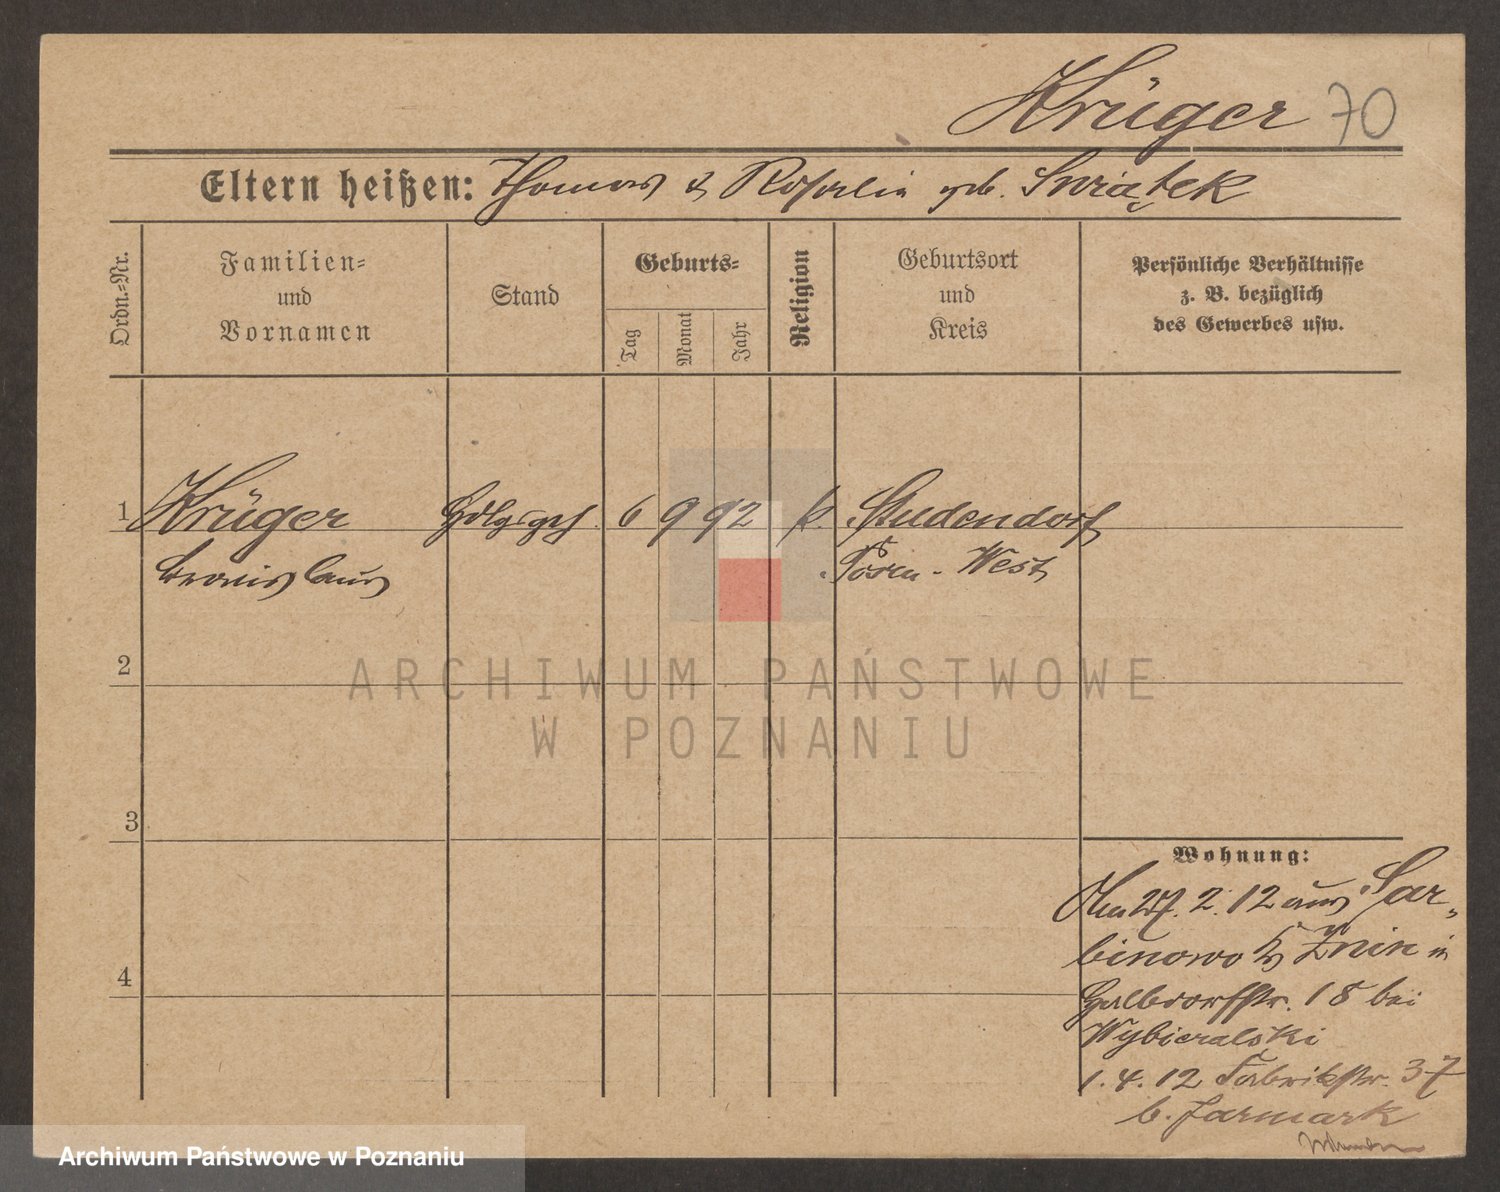 Krüger 70
Eltern heißen: Thomas & Rosalia geb. Swiątek
Ordn.=Nr.
Familien=
und
Vornamen
Stand
Geburts=
Tag
Monat
Jahr
Religion
Geburtsort
und
Kreis
Persönliche Verhältnisse
z. B. bezüglich
des Gewerbes usw.
1 Krüger Hdlgsgeh. 6 9 92 k. Studendorf
Bronislaus Posen-West
2
3
4
Wohnung:
27.2.12 aus Sar-
binowo Kr Znin in
Halbdorfstr. 18 bei
Wybieralski
1.4.12 Fabrikstr. 37
b. Jarmark
ARCHIWUM PAŃSTWOWE
W POZNANIU
Archiwum Państwowe w Poznaniu